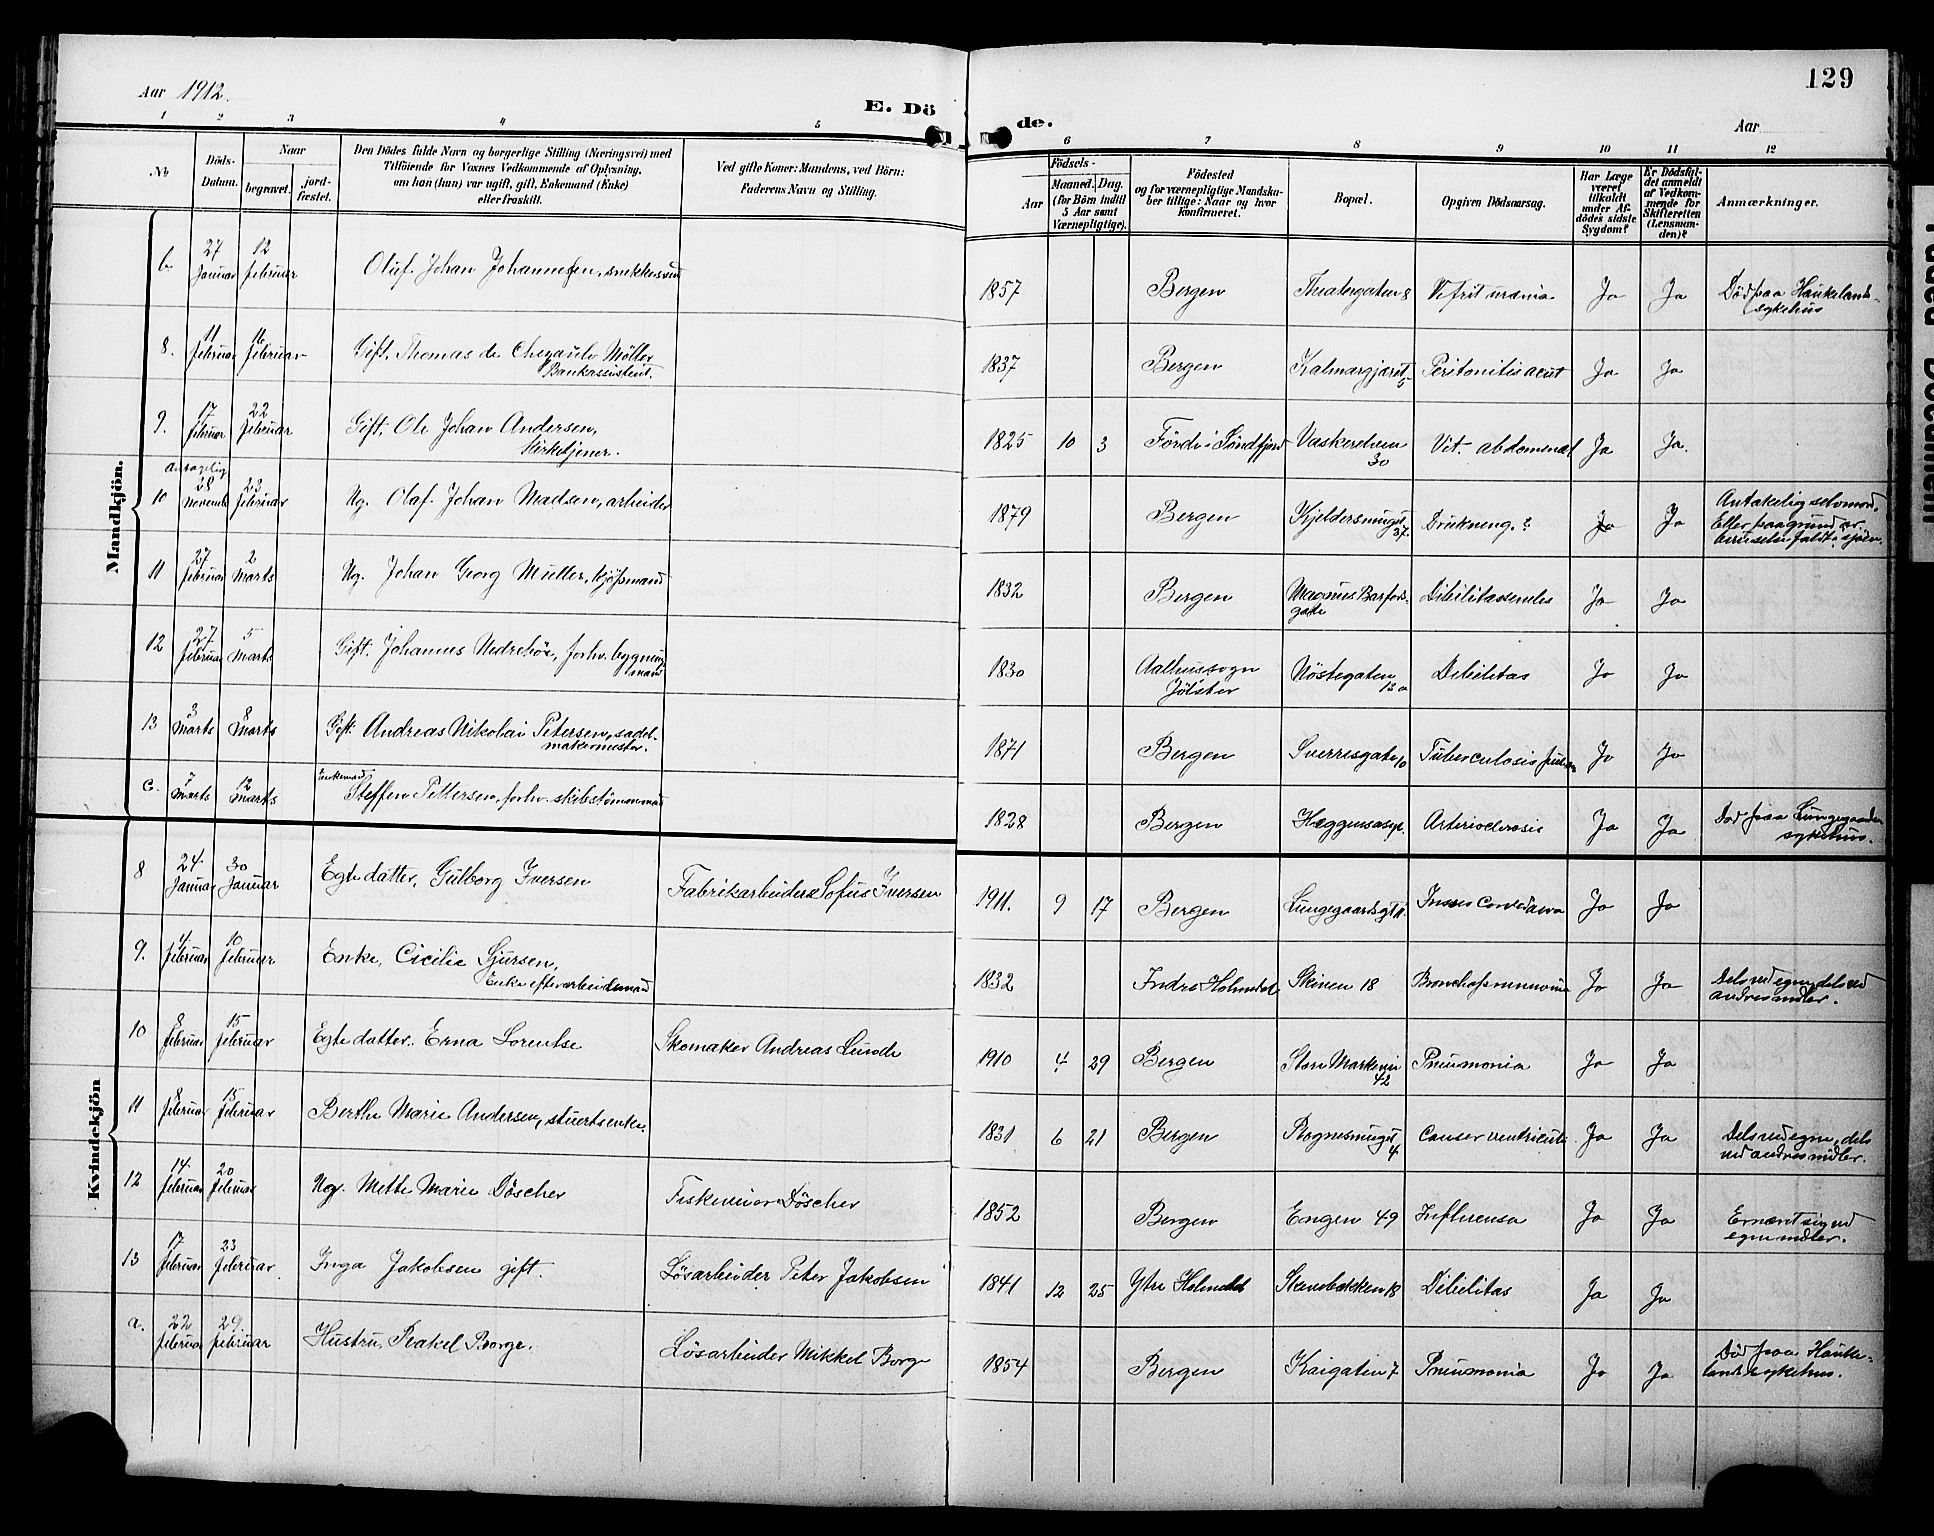 129
Aar 1912.
E. Dö
de.
Aar
1 2 3 4 5
6 7 8 9 10 11 12
No
Döds-
Datum.
Naar
begravet.
jord-
fæstet.
Den Dödes fulde Navn og borgerlige Stilling (Næringsvei) med
Tilföiende for Voxnes Vedkommende af Oplysning,
om han (hun) var ugift, gift, Enkemand (Enke)
eller fraskilt.
Ved gifte Koner: Mandens, ved Börn:
Faderens Navn og Stilling.
Födsels-
Aar
Maaned. Dag.
(for Börn indtil
5 Aar samt
Værnepligtige).
Födested
og for værnepligtige Mandska-
ber tillige: Naar og hvor
konfirmeret.
Bopæl.
Opgiven Dödsaarsag.
Har Læge
været
tilkaldt
under Af-
dödes sidste
Sygdom?
Er Dödsfal-
det anmeldt
af Vedkom-
mende for
Skifteretten
(Lensman-
den)?
Anmærkninger.
Mandkjön.
b. 27 Januar 12 Februar Oluf Johan Johannesen, snekkersvend 1857 Bergen Theatergaten 8 Ja Ja Død paa Haukeland
sykehus
8. 11 Februar 16 Februar Gift, Thomas de Møller
Bankassistent. 1837 Bergen Kalmargjæret 5 Peritonitis acut Ja Ja
9. 17 Februar 22 Februar Gift, Ole Johan Andersen,
Kirketjener. 1825 10 3 Førde i Søndfjord Vaskerelven
30 Vit. abdomenal Ja Ja.
10 28 Novembr 23 Februar Ug. Olaf Johan Madsen, arbeider 1879 Bergen Kjeldersmuget
37. Drukning.? Ja Ja Antakelig selvmord.
Eller paa grund av
faldt i sjøen.
11 27 Februar 2 Marts Ug. Johan Georg Muller, kjøpmand 1832 Bergen Magnus Barfods-
gate Ja Ja
12 27 Februar 5 Marts Gift. forhv. bygnings
mand 1830 Aalhussogn
Jølster Nøstegaten
13a Debilitas Ja Ja
13 3 Marts 8 Marts Gift. Andreas Nikolai Petersen, sadel-
makermester. 1871 Bergen Sverresgate 10 Tuberculosis Ja Ja
c. 7 Marts 12 Marts Enkemand
Steffen Pettersen, forhv. skibstømmermand 1828 Bergen Arteriosclerosis Ja Ja Død paa Lungegaarden
sykehus.
Kvindekjön
8 24 Januar 30 Januar Egte datter, Gulborg Iversen Fabrikarbeider Sofus Iversen 1911. 9 17 Bergen Ja Ja
9. 4 Februar 10 Februar Enke, Cicilie Sjursen,
Enke efter arbeidsmand 1832 Indre Holmedal Skiven 18 Ja Ja Dels ved egne, dels ved
andres midler.
10 8 Februar 15 Februar Egte datter: Erna Lorentse Skomaker Andreas Lunde 1910 4 29 Bergen Store Markevei
42 Pneumonia Ja Ja
11 8 Februar 15 Februar Berthe Marie Andersen, stuertsenke. 1831 6 21 Bergen Rognesmuget
4 Ja Ja Dels ved egne, dels
ved andres midler.
12 14 Februar 20 Februar Ug. Mette Marie Döscher Döscher 1852 Bergen Engen 49 Influensa Ja Ja Ernært sig ved
egne midler.
13 17 Februar 23 Februar Inga Jakobsen gift. Løsarbeider Peter Jakobsen 1841 12 25 Ytre Holmedal Skivebakken 18 Debilitas Ja Ja
a. 22 Februar 29 Februar Hustru, Rakel Borge. Løsarbeider Mikkel Borge 1854 Bergen Kaigaten 7 Pneumonia Ja Ja Død paa Hauke-
lands sykehus.